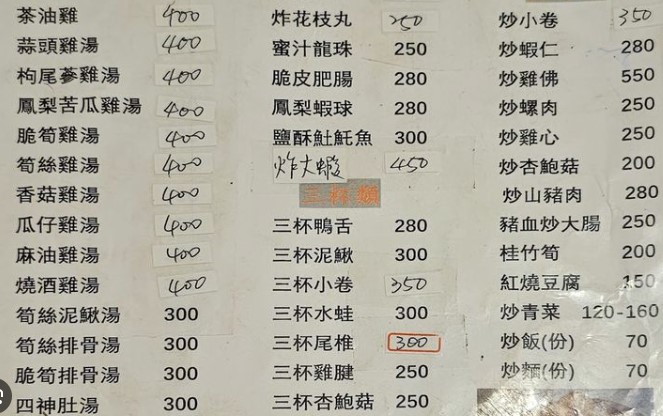 茶油雞 400
蒜頭雞湯 400
枸尾蔘雞湯 400
鳳梨苦瓜雞湯 400
脆筍雞湯 400
筍絲雞湯 400
香菇雞湯 400
瓜仔雞湯 400
麻油雞湯 400
燒酒雞湯 400
筍絲泥鰍湯 300
筍絲排骨湯 300
脆筍排骨湯 300
四神肚湯 300
炸花枝丸 250
蜜汁龍珠 250
脆皮肥腸 280
鳳梨蝦球 280
鹽酥魠魠魚 300
炸大蝦 450
三杯類
三杯鴨舌 280
三杯泥鰍 300
三杯小卷 350
三杯水蛙 300
三杯尾椎 300
三杯雞腱 250
三杯杏鮑菇 250
炒小卷 350
炒蝦仁 280
炒雞佛 550
炒螺肉 250
炒雞心 250
炒杏鮑菇 200
炒山豬肉 280
豬血炒大腸 250
桂竹筍 200
紅燒豆腐 150
炒青菜 120-160
炒飯(份) 70
炒麵(份) 70